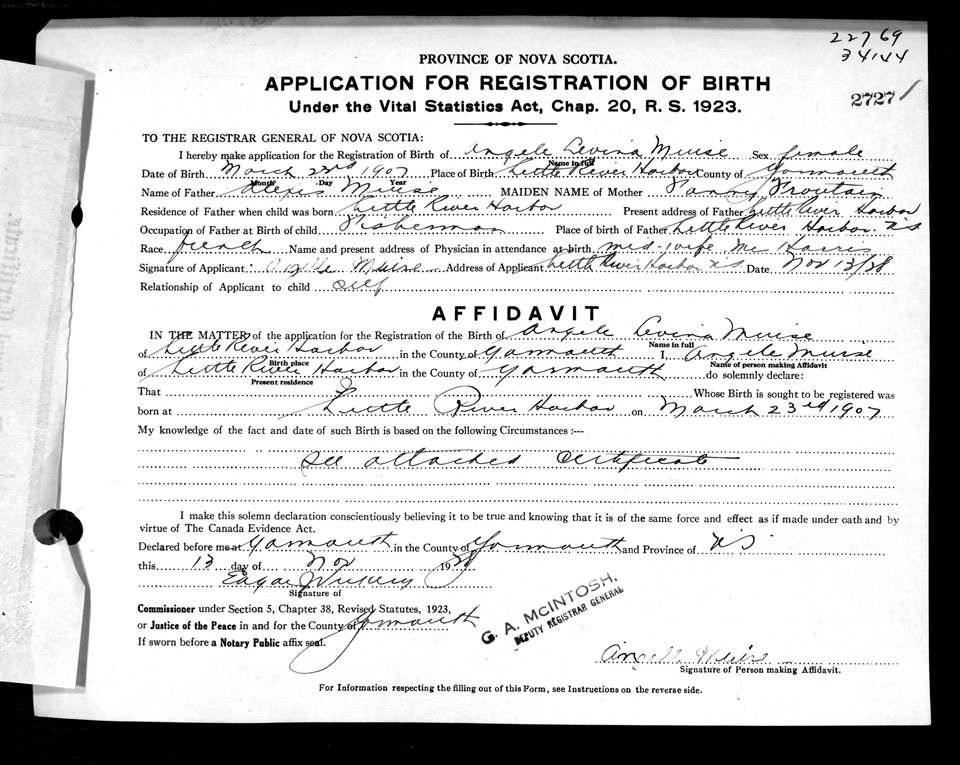 22769
34144
2727
PROVINCE OF NOVA SCOTIA.
APPLICATION FOR REGISTRATION OF BIRTH
Under the Vital Statistics Act, Chap. 20, R. S. 1923.
TO THE REGISTRAR GENERAL OF NOVA SCOTIA:
I hereby make application for the Registration of Birth of Angele Levina Muise Sex female
Name in full
Date of Birth March 23rd 1907 Place of Birth Little River Harbor County of Yarmouth
Month Day Year
Name of Father Alexis Muise MAIDEN NAME of Mother Fanny
Residence of Father when child was born Little River Harbor Present address of Father Little River Harbor
Occupation of Father at Birth of child Fisherman Place of birth of Father Little River Harbor NS
Race french Name and present address of Physician in attendance at birth mid-wife Mrs Harris
Signature of Applicant: Angelle Muise Address of Applicant Little River Harbor NS Date Nov 13/38
Relationship of Applicant to child self
AFFIDAVIT
IN THE MATTER of the application for the Registration of the Birth of Angele Levina Muise
Name in full
of Little River Harbor in the County of Yarmouth I, Angele Muise
Birth place Name of person making Affidavit
of Little River Harbor in the County of Yarmouth do solemnly declare:
Present residence
That Whose Birth is sought to be registered was
born at Little River Harbor on March 23rd 1907
My knowledge of the fact and date of such Birth is based on the following Circumstances :---
See attached certificate
I make this solemn declaration conscientiously believing it to be true and knowing that it is of the same force and effect as if made under oath and by
virtue of The Canada Evidence Act.
Declared before me at Yarmouth in the County of Yarmouth and Province of NS
this 13 day of Nov 1938
Edgar
Signature of
Commissioner under Section 5, Chapter 38, Revised Statutes, 1923,
or Justice of the Peace in and for the County of Yarmouth
If sworn before a Notary Public affix seal.
G. A. McINTOSH.
DEPUTY REGISTRAR GENERAL
Angelle Muise
Signature of Person making Affidavit.
For Information respecting the filling out of this Form, see Instructions on the reverse side.